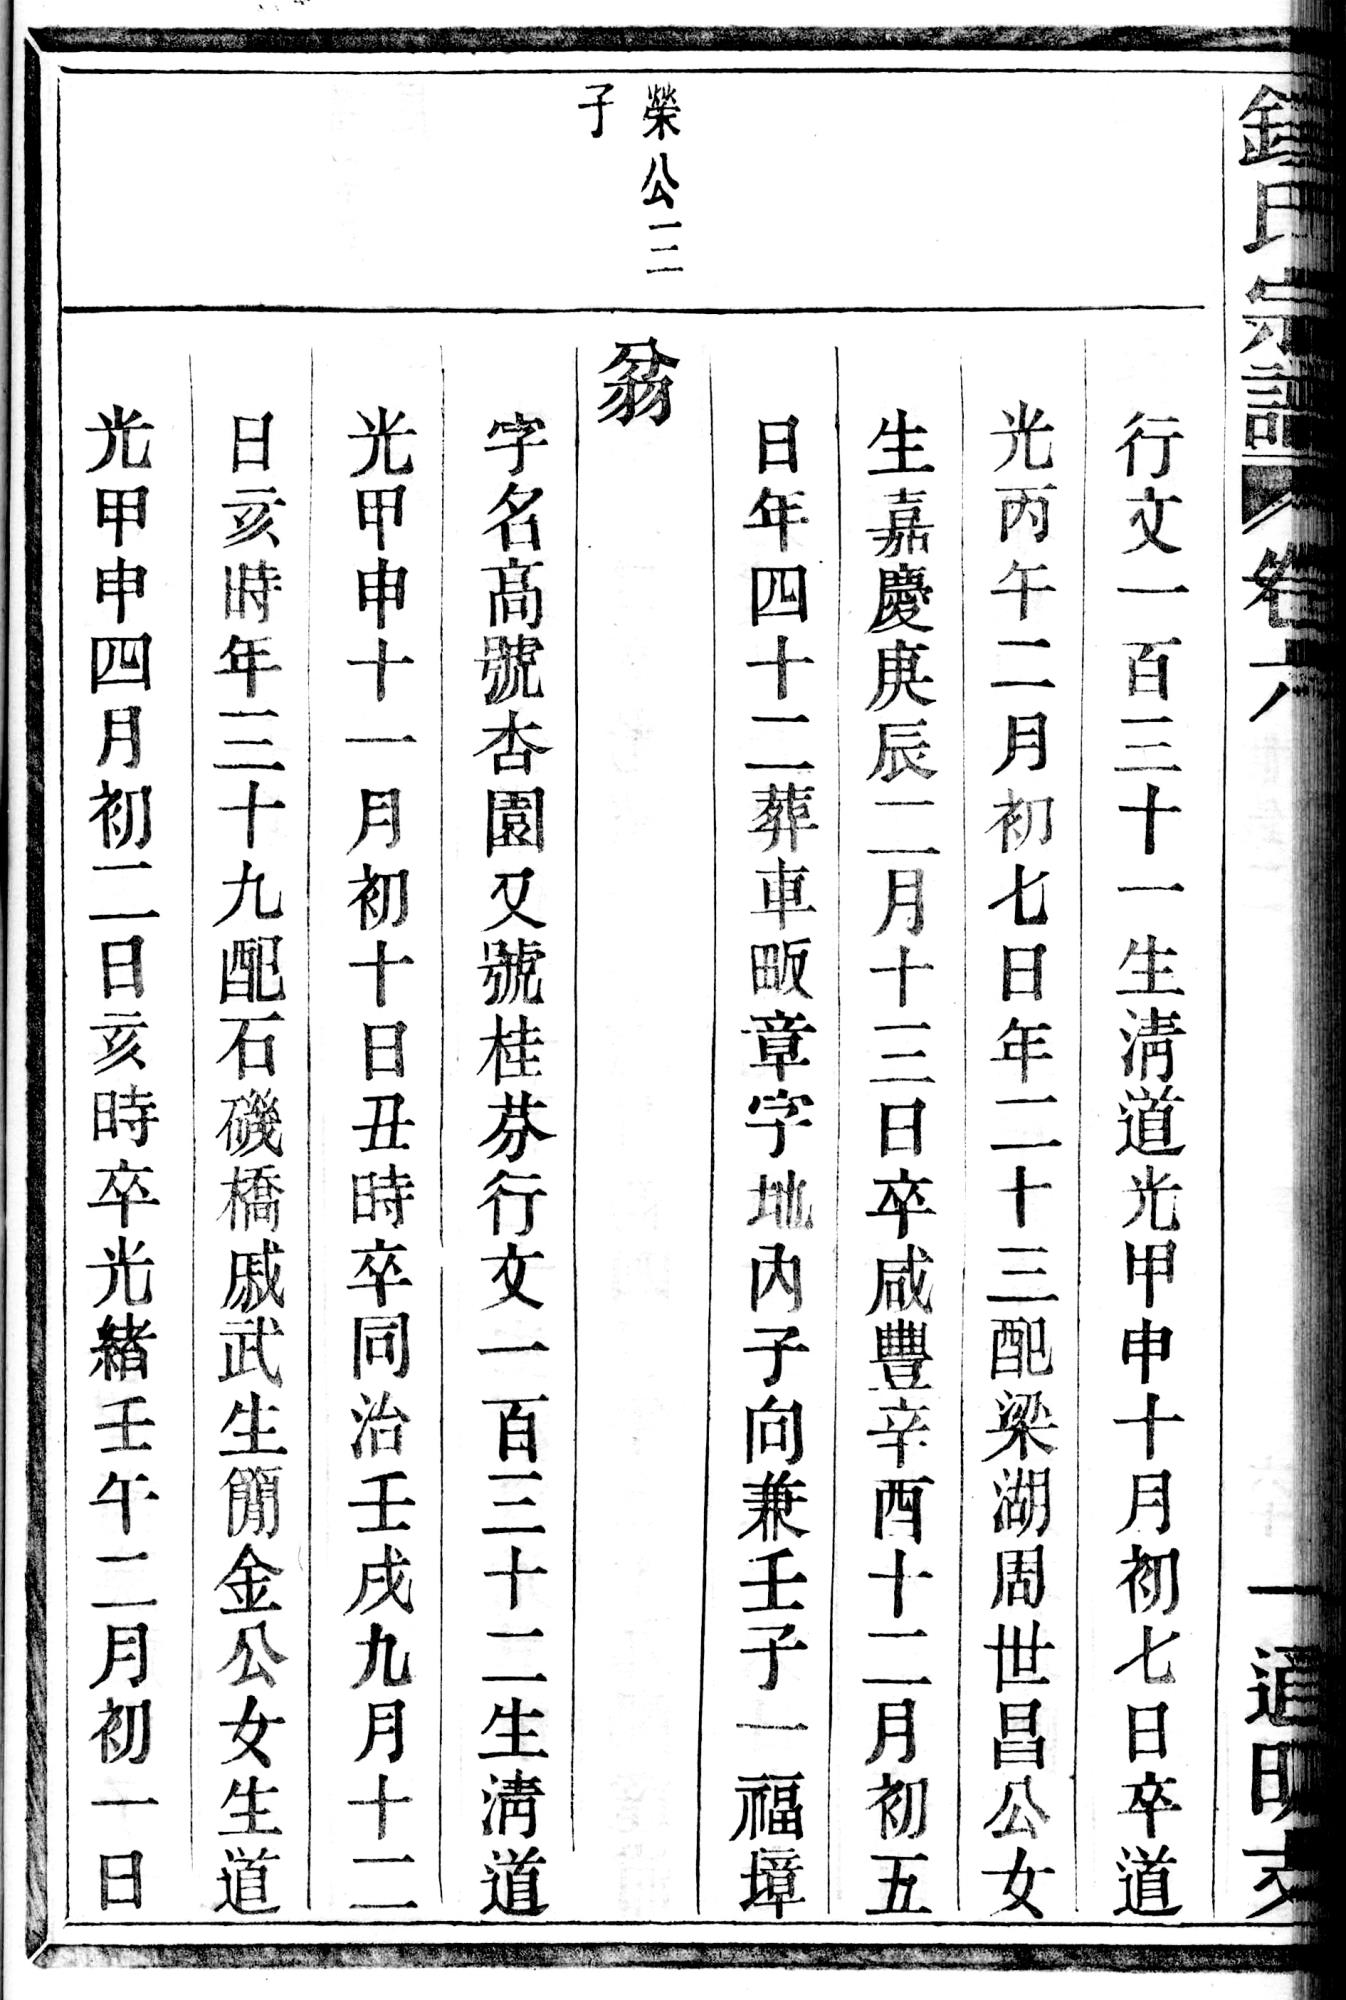 氏宗譜 卷六 一
榮公三
子
行文一百三十一生淸道光甲申十月初七日卒道
光丙午二月初七日年二十三配梁湖周世昌公女
生嘉慶庚辰二月十三日卒咸豐辛酉十二月初五
日年四十二葬車畈章字地內子向兼壬子一福墇
翁
字名高號杏園又號桂芬行文一百三十二生淸道
光甲申十一月初十日丑時卒同治壬戌九月十二
日亥時年三十九配石磯橋戚武生簡金公女生道
光甲申四月初二日亥時卒光緒壬午二月初一日